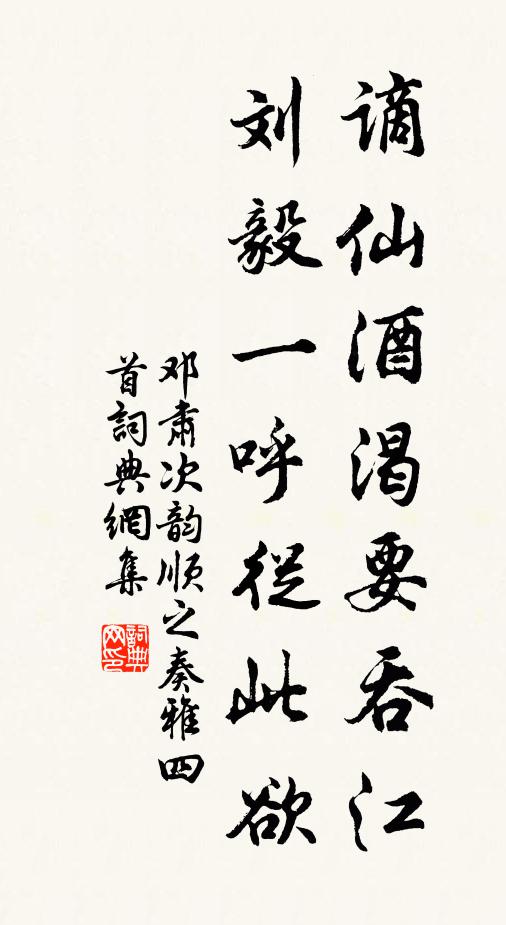 谪仙酒渴要吞江
刘毅一呼從此欲
邓肃次韵順之奏雅四
首詞典網集
詞典
网印